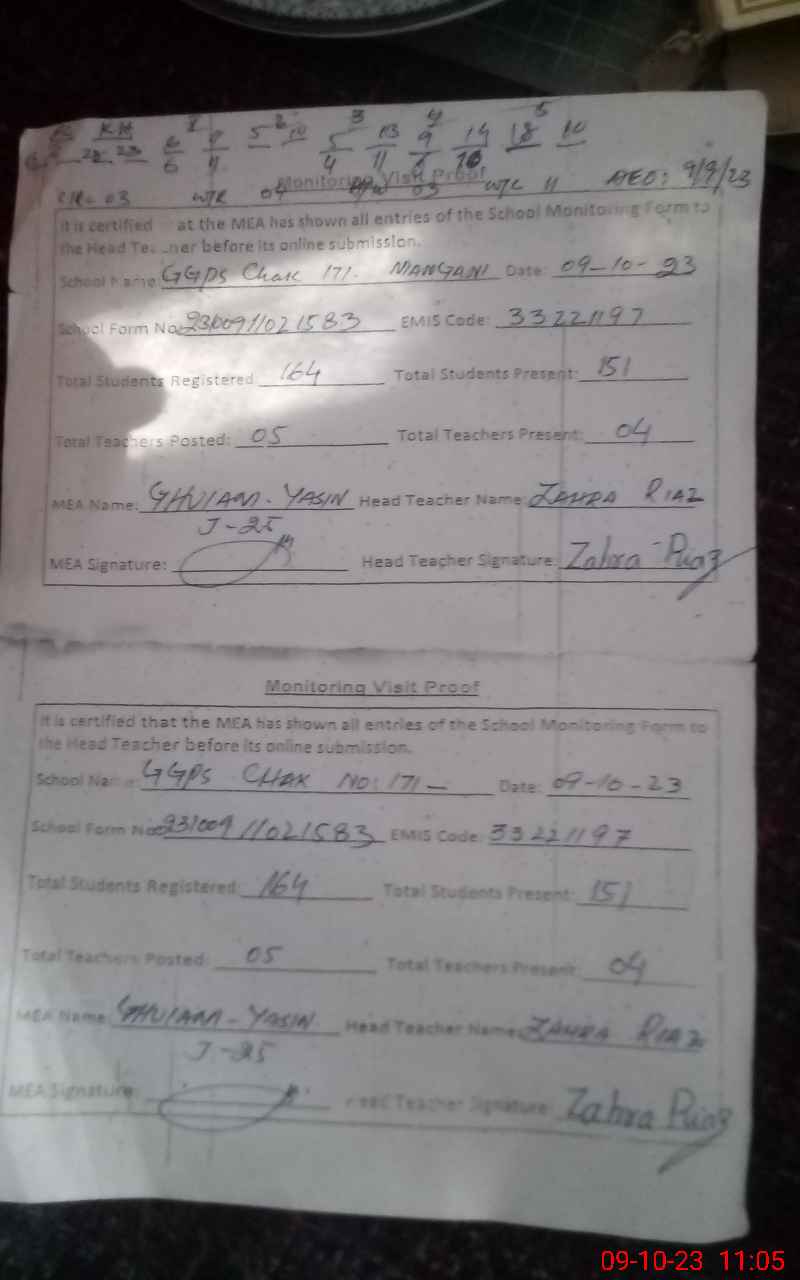 1 2 3 4 5
KH
28 23 6/6 9/11 5 10 5/4 13/11 9/6 14/10 18 10
Monitoring Visit Proof
03 W/R 04 03 W/C 11 AEO: 9/9/23
It is certified at the MEA has shown all entries of the School Monitoring Form to
the Head Te ner before its online submission.
School Name GGPS Chak 171. MANGANI Date: 09-10-23
School Form No 23100911021583 EMIS Code: 33221197
Total Students Registered 164 Total Students Present: 151
Total Teachers Posted: 05 Total Teachers Present: 04
MEA Name: GHULAM-YASIN Head Teacher Name: ZAHRA RIAZ
J-25
MEA Signature: Head Teacher Signature: Zahra Riaz
Monitoring Visit Proof
It is certified that the MEA has shown all entries of the School Monitoring Form to
the Head Teacher before its online submission.
School Na e GGPS CHAK NO: 171- Date: 09-10-23
School Form No 23100911021583 EMIS Code: 33221197
Total Students Registered: 164 Total Students Present: 151
Total Teachers Posted: 05 Total Teachers Present: 04
MEA Name: GHULAM-YASIN Head Teacher Name: ZAHRA RIAZ
J-25
MEA Signature: Head Teacher Signature: Zahra Riaz
09-10-23 11:05